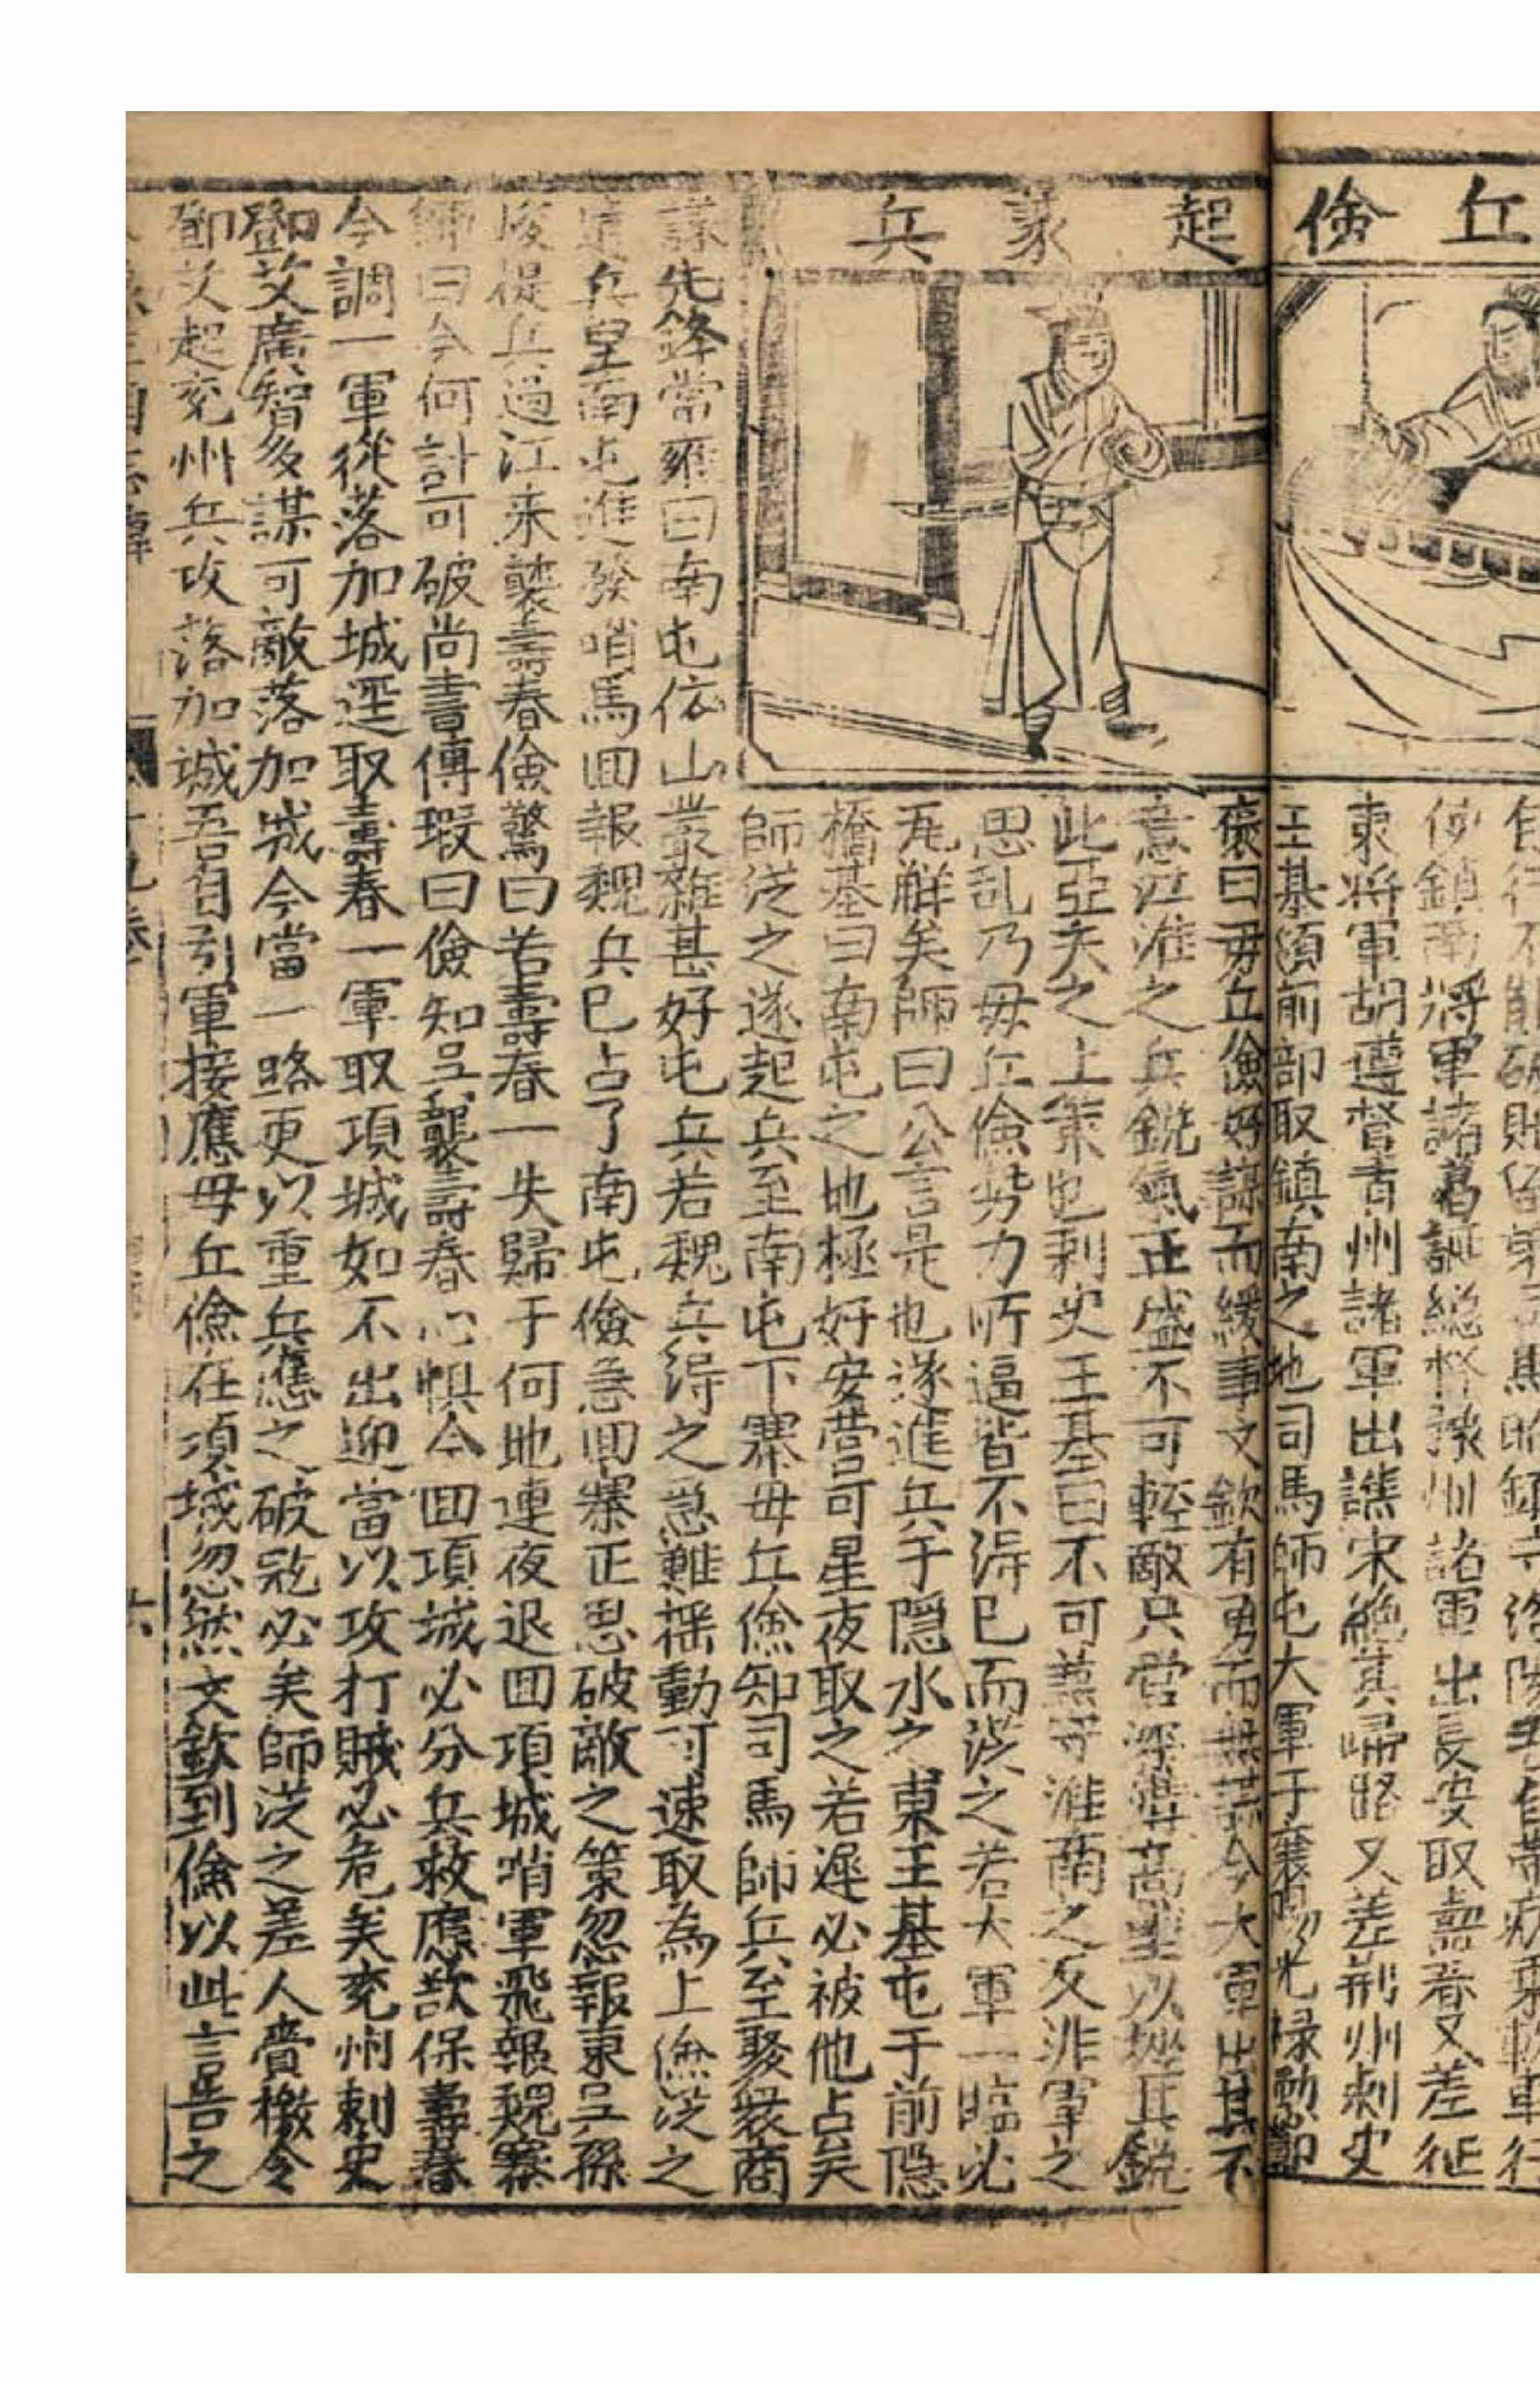 丘儉
起篆兵
自行不能破賊留弟司馬昭鎮守洛陽
使鎮南將軍諸葛誕総督豫州諸軍出長安取壽春又差征
東將軍胡遵督青州諸軍出譙宋絶其歸路又差荊州刺史
王基須前部取鎮南之地司馬師屯大軍于襄陽光禄勳鄭
褒曰毋丘儉好謀而緩事文欽有勇而無謀今大軍出其不
意江淮之兵鋭氣正盛不可輕敵只宜深溝高壘以挫其鋭
此亞夫之上策也刺史王基曰不可盖淮南之反非軍之
思乱乃毋丘儉势力所逼皆不得已而從之若大軍一臨必
瓦觧矣師曰公言是也遂進兵于隠水之東王基屯于前隠
橋基曰南屯之地極好安营可星夜取之若遲必被他占矣
師從之遂起兵至南屯下寨毋丘儉知司馬師兵至聚衆商
議先鋒當雍曰南屯依山叢雜甚好屯兵若魏兵得之急難揺動可速取為上儉從之
遣兵望南屯進發哨馬囬報魏兵已占了南屯儉急囬寨正思破敵之策忽報東吴孫
峻提兵過江来襲壽春儉驚曰若壽春一失歸于何地連夜退囬項城哨軍飛報魏寨
師曰今何計可破尚書傅瑕曰儉知吴襲壽春心惧今囬項城必分兵救應欲保壽春
今調一軍從落加城逕取壽春一軍取項城如不出迎當以攻打賊必危矣兖州刺史
鄧艾廣智多謀可敵落加城今當一路更以重兵應之破㓂必矣師從之差人賫檄令
鄧艾起兖州兵攻落加城吾自引軍接應毋丘儉在項城忽然文欽到儉以此言告之
十九卷
六